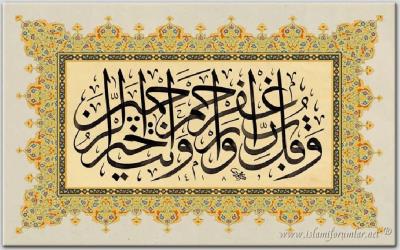 وَقُل رَّبِّ اغْفِرْ وَارْحَمْ وَأَنتَ خَيْرُ الرَّاحِمِينَ
www.islamiforumlar.net